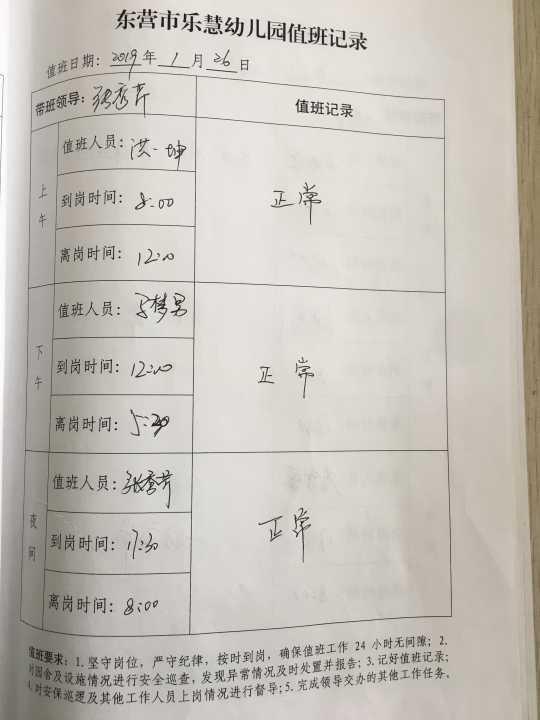 东营市乐慧幼儿园值班记录
值班日期：2019年 1 月 26 日
带班领导：张秀芹
值班记录
上午
值班人员：洪一坤
到岗时间：8:00
离岗时间：12:00
正常
下午
值班人员：马梦男
到岗时间：12:00
离岗时间：5:30
正常
夜间
值班人员：张秀芹
到岗时间：17:30
离岗时间：8:00
正常
值班要求：1. 坚守岗位，严守纪律，按时到岗，确保值班工作 24 小时无间隙；2.
对园舍及设施情况进行安全巡查，发现异常情况及时处置并报告；3. 记好值班记录；
4. 对安保巡逻及其他工作人员上岗情况进行督导；5. 完成领导交办的其他工作任务。